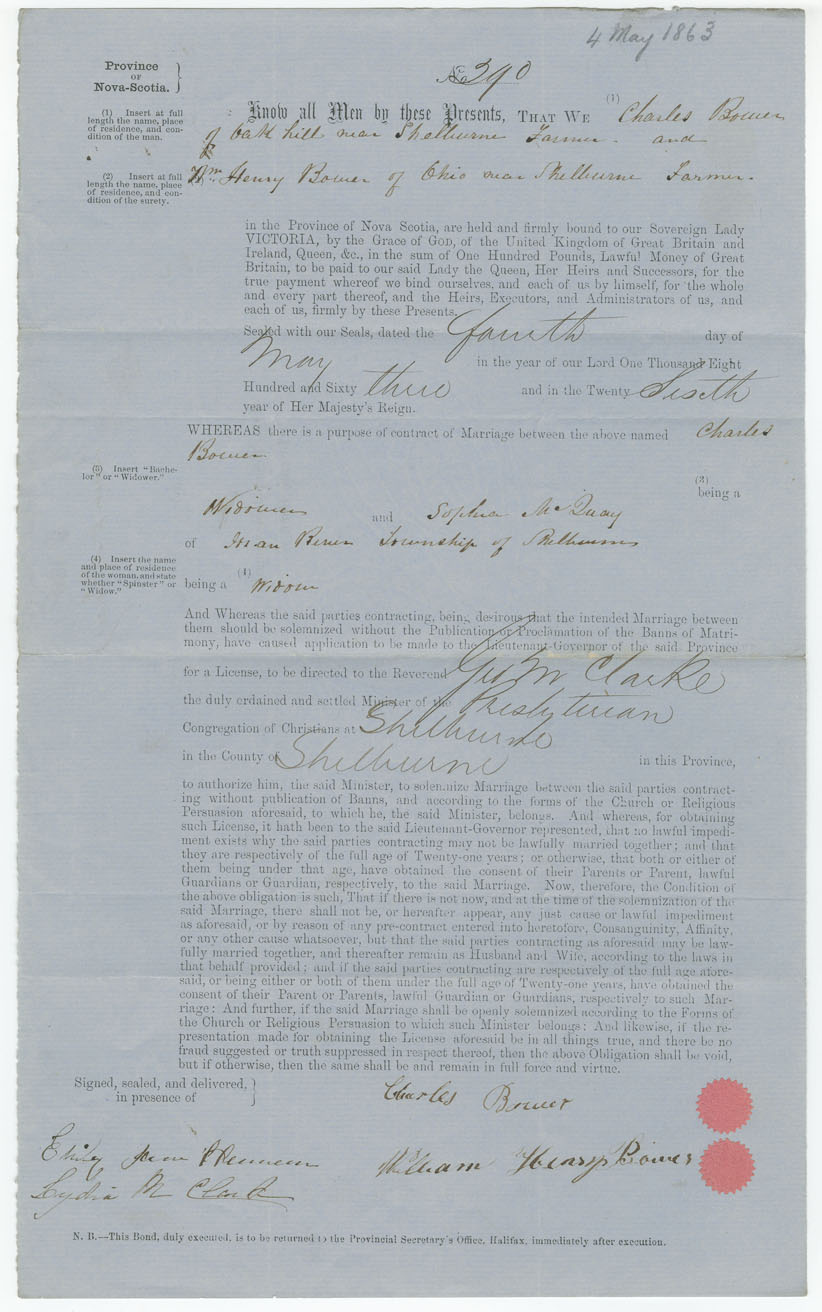 4 May 1863
Province
OF
Nova-Scotia.
No 390
(1) Insert at full
length the name, place
of residence, and con-
dition of the man.
Know all Men by these Presents, THAT WE (1) Charles Bower
of Oak hill near Shelburne Farmer and
(2) Insert at full
length the name, place
of residence, and con-
dition of the surety.
Wm. Henry Bower of Ohio near Shelburne Farmer.
in the Province of Nova Scotia, are held and firmly bound to our Sovereign Lady
VICTORIA, by the Grace of GOD, of the United Kingdom of Great Britain and
Ireland, Queen, &c., in the sum of One Hundred Pounds, Lawful Money of Great
Britain, to be paid to our said Lady the Queen, Her Heirs and Successors, for the
true payment whereof we bind ourselves, and each of us by himself, for the whole
and every part thereof, and the Heirs, Executors, and Administrators of us, and
each of us, firmly by these Presents.
Sealed with our Seals, dated the fourth day of
May in the year of our Lord One Thousand Eight
Hundred and Sixty three and in the Twenty Sixth
year of Her Majesty's Reign.
WHEREAS there is a purpose of contract of Marriage between the above named Charles
Bower
(3) Insert "Bache-
lor" or "Widower."
(3)
being a
Widower and Sophia McQuay
of River Township of Shelburne
(4) Insert the name
and place of residence
of the woman, and state
whether "Spinster" or
"Widow."
(4)
being a Widow
And Whereas the said parties contracting, being desirous that the intended Marriage between
them should be solemnized without the Publication or Proclamation of the Banns of Matri-
mony, have caused application to be made to the Lieutenant-Governor of the said Province
for a License, to be directed to the Reverend G M Clarke
the duly ordained and settled Minister of the Presbyterian
Congregation of Christians at Shelburne
in the County of Shelburne in this Province,
to authorize him, the said Minister, to solemnize Marriage between the said parties contract-
ing without publication of Banns, and according to the forms of the Church or Religious
Persuasion aforesaid, to which he, the said Minister, belongs. And whereas, for obtaining
such License, it hath been to the said Lieutenant-Governor represented, that no lawful impedi-
ment exists why the said parties contracting may not be lawfully married together; and that
they are respectively of the full age of Twenty-one years; or otherwise, that both or either of
them being under that age, have obtained the consent of their Parents or Parent, lawful
Guardians or Guardian, respectively, to the said Marriage. Now, therefore, the Condition of
the above obligation is such, That if there is not now, and at the time of the solemnization of the
said Marriage, there shall not be, or hereafter appear, any just cause or lawful impediment
as aforesaid, or by reason of any pre-contract entered into heretofore, Consanguinity, Affinity,
or any other cause whatsoever, but that the said parties contracting as aforesaid may be law-
fully married together, and thereafter remain as Husband and Wife, according to the laws in
that behalf provided; and if the said parties contracting are respectively of the full age afore-
said, or being either or both of them under the full age of Twenty-one years, have obtained the
consent of their Parent or Parents, lawful Guardian or Guardians, respectively to such Mar-
riage: And further, if the said Marriage shall be openly solemnized according to the Forms of
the Church or Religious Persuasion to which such Minister belongs: And likewise, if the re-
presentation made for obtaining the License aforesaid be in all things true, and there be no
fraud suggested or truth suppressed in respect thereof, then the above Obligation shall be void,
but if otherwise, then the same shall be and remain in full force and virtue.
Signed, sealed, and delivered,
in presence of
Charles Bower
Emily Jane
William Henry Bower
Lydia M Clark
N. B.—This Bond, duly executed, is to be returned to the Provincial Secretary's Office, Halifax, immediately after execution.